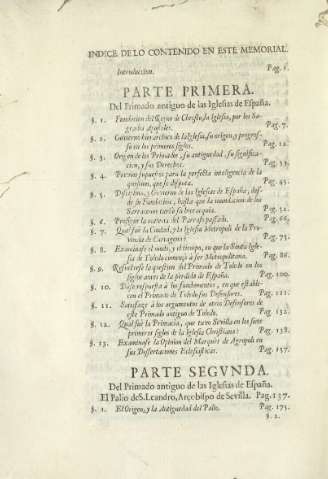 INDICE DE LO CONTENIDO EN ESTE MEMORIAL.
Introduccion. Pag. 1.
PARTE PRIMERA.
Del Primado antiguo de las Iglesias de España.
§. 1. Fundacion del Reyno de Christo, la Iglesia, por los Sagrados Apostoles. Pag. 7.
§. 2. Govierno hierarchico de la Iglesia, su origen, y progresso en los primeros siglos. Pag. 12.
§. 3. Origen de los Primados, su antiguedad, su significacion, y sus Derechos. Pag. 33.
§. 4. para la perfecta inteligencia de la question, que se disputa. Pag. 45.
§. 5. Disciplina, y Govierno de las Iglesias de España, desde su Fundacion, hasta que la inundacion de los Sarracenos turbò su brio. Pag. 52.
§. 6. la materia del Pag. 66.
§. 7. Qual fue la Ciudad, y la Iglesia Metropoli de la Provincia de Cartagena? Pag. 73.
§. 8. Examinase el modo, y el tiempo, en que la Santa Iglesia de Toledo començò à ser Metropolitana. Pag. 86.
§. 9. Resuelvese la question del Primado de Toledo en los siglos antes de la pèrdida de España. Pag. 100.
§. 10. Dase respuesta à los fundamentos, en que establecen el Primado de Toledo sus Defensores. Pag. 111.
§. 11. Satisfaze à los argumentos de otros Defensores de este Primado antiguo de Toledo. Pag. 132.
§. 12. Qual fue la Primacia, que tuvo Sevilla en los siete primeros siglos de la Iglesia Christiana? Pag. 138.
§. 13. Examinase la Opinion del Marquès de Agropoli en sus Dissertaciones Eclesiasticas. Pag. 157.
PARTE SEGVNDA.
Del Primado antiguo de las Iglesias de España.
El Palio de S. Leandro, Arçobispo de Sevilla. Pag. 157.
§. 1. El Origen, y la Antiguedad del Palio. Pag. 175.
§. 2.